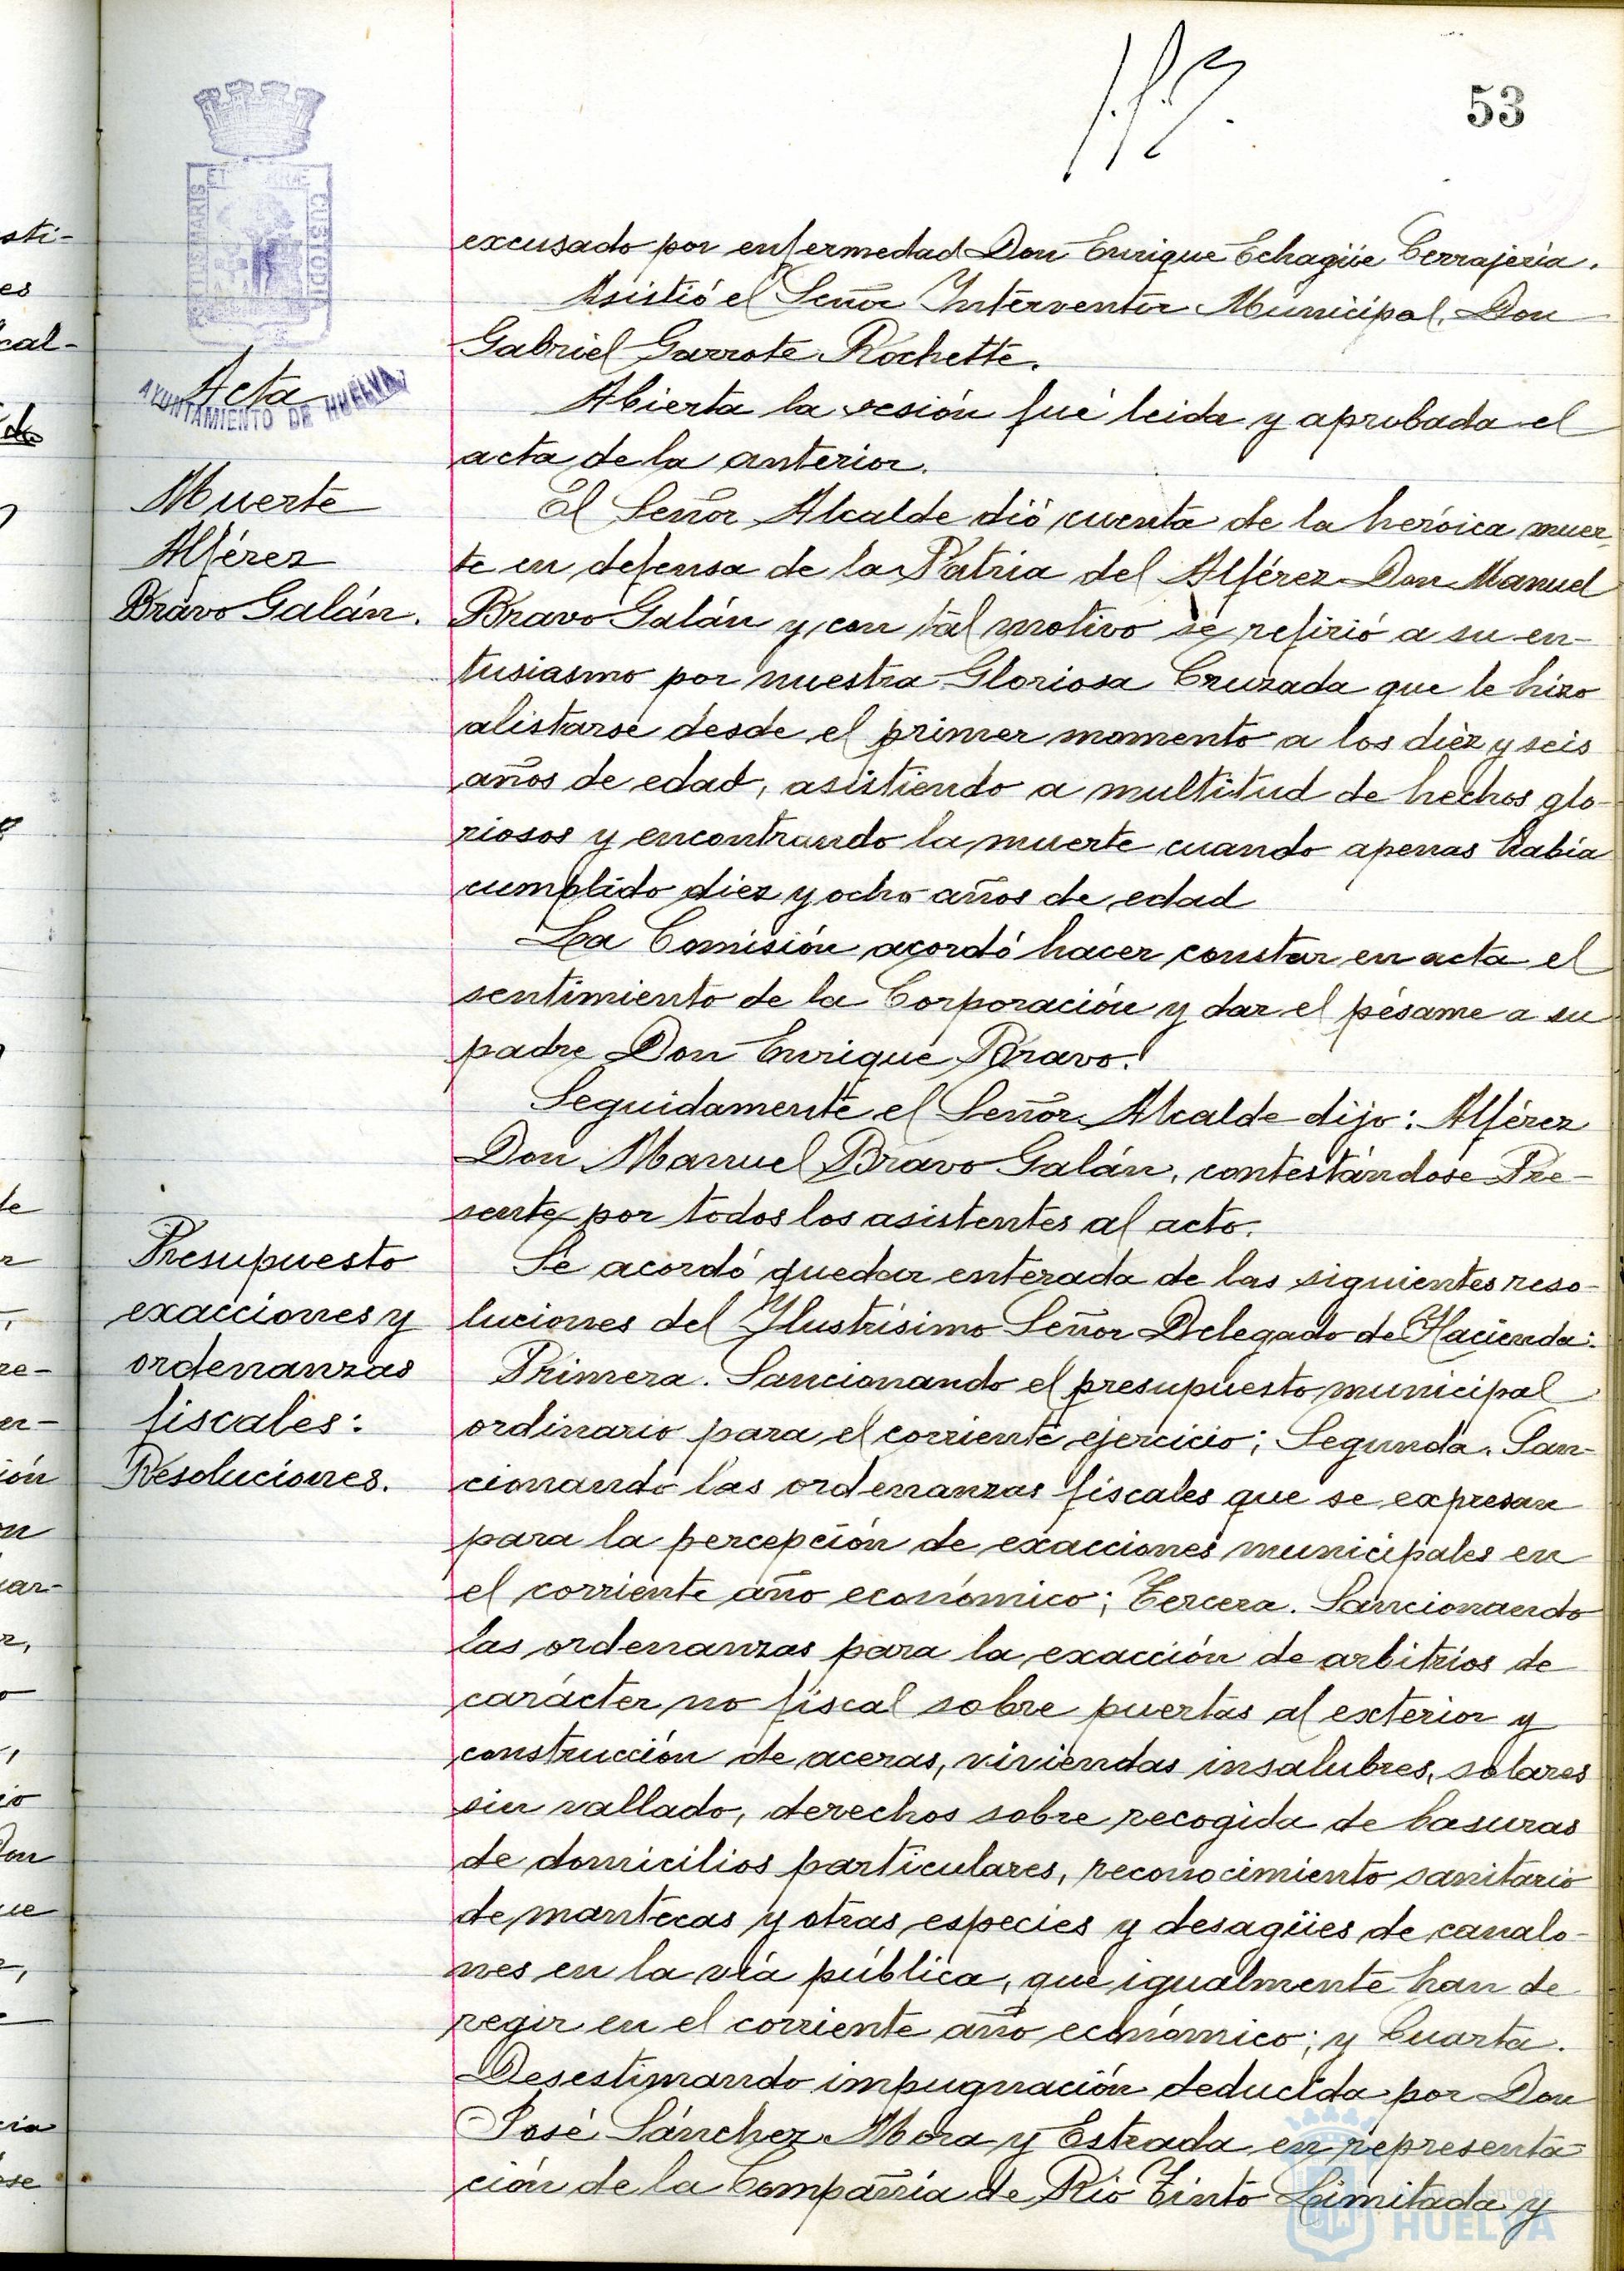 53
excusado por enfermedad Don Enrique Echagüe Cerrajería.
Asistió el Señor Interventor Municipal, Don
Gabriel Garrote Rochette.
Acta
AYUNTAMIENTO DE HUELVA
Abierta la sesión fué leida y aprobada el
acta de la anterior.
Muerte
Alférez
Bravo Galán.
El Señor Alcalde dió cuenta de la heróica muer-
te en defensa de la Patria del Alférez Don Manuel
Bravo Galán y con tal motivo se refirió a su en-
tusiasmo por nuestra Gloriosa Cruzada que le hizo
alistarse desde el primer momento a los diez y seis
años de edad, asistiendo a multitud de hechos glo-
riosos y encontrando la muerte cuando apenas había
cumplido diez y ocho años de edad
La Comisión acordó hacer constar en acta el
sentimiento de la Corporación y dar el pésame a su
padre Don Enrique Bravo.
Seguidamente el Señor Alcalde dijo: Alférez
Don Manuel Bravo Galán, contestándose Pre-
sente por todos los asistentes al acto.
Presupuesto
exacciones y
ordenanzas
fiscales:
Resoluciones.
Se acordó quedar enterada de las siguientes reso-
luciones del Ylustrísimo Señor Delegado de Hacienda:
Primera. Sancionando el presupuesto municipal
ordinario para el corriente ejercicio; Segunda. San-
cionando las ordenanzas fiscales que se expresan
para la percepción de exacciones municipales en
el corriente año económico; Tercera. Sancionando
las ordenanzas para la exacción de arbitrios de
carácter no fiscal sobre puertas al exterior y
construcción de aceras, viviendas insalubres, solares
sin vallado, derechos sobre recogida de basuras
de domicilios particulares, reconocimiento sanitario
de mantecas y otras especies y desagües de canalo-
nes en la vía pública, que igualmente han de
regir en el corriente año económico; y Cuarta.
Desestimando impugnación deducida por Don
José Sánchez Mora y Estrada en representa-
ción de la Compañía de Rio Tinto Limitada y
Ayuntamiento de
HUELVA